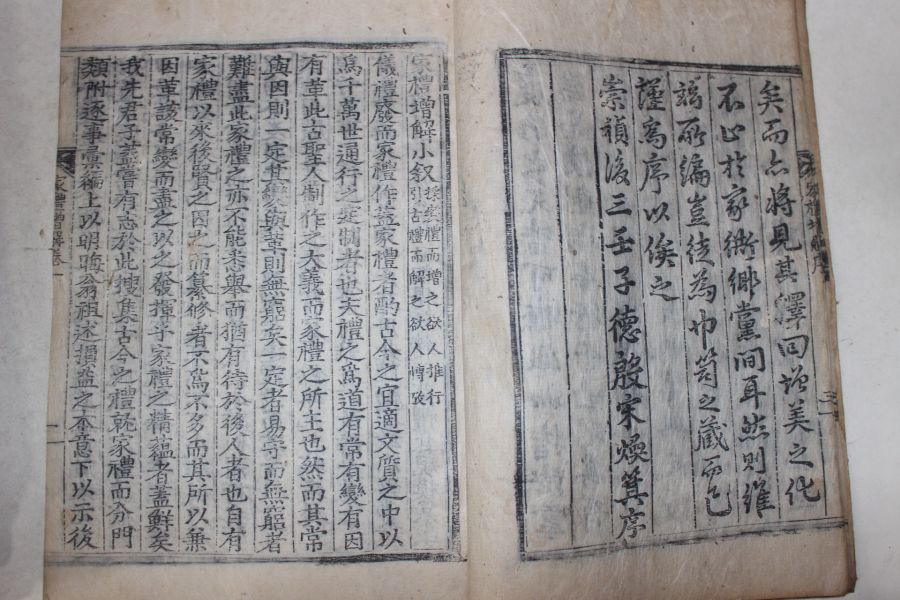 矣而亦將見其澤回增美之化
不止於家衖鄉黨間耳然則維
端所編豈徒為巾笥之藏而已
謹為序以俟之
崇禎後三壬子德殷宋煥箕序
家禮增解小叙 採衆禮而增之欲人推行
引古禮而解之欲人博攷
儀禮廢而家禮作蓋家禮者酌古今之宜適文質之中以
爲千萬世通行之定制者也夫禮之爲道有常有變有因
有革此古聖人制作之大義而家禮之所主也然而其常
與因則一定其變與革則無窮矣一定者易守而無窮者
難盡此家禮之亦不能悉舉而猶有待於後人者也自有
家禮以來後賢之因之而纂修者不爲不多而其所以兼
因革該常變而盡之以之發揮乎家禮之精蘊者蓋鮮矣
我先君子蓋嘗有志於此搜集古今之禮就家禮而分門
類附逐事彙編上以明晦翁祖述損益之本意下以示後
家禮增解卷一